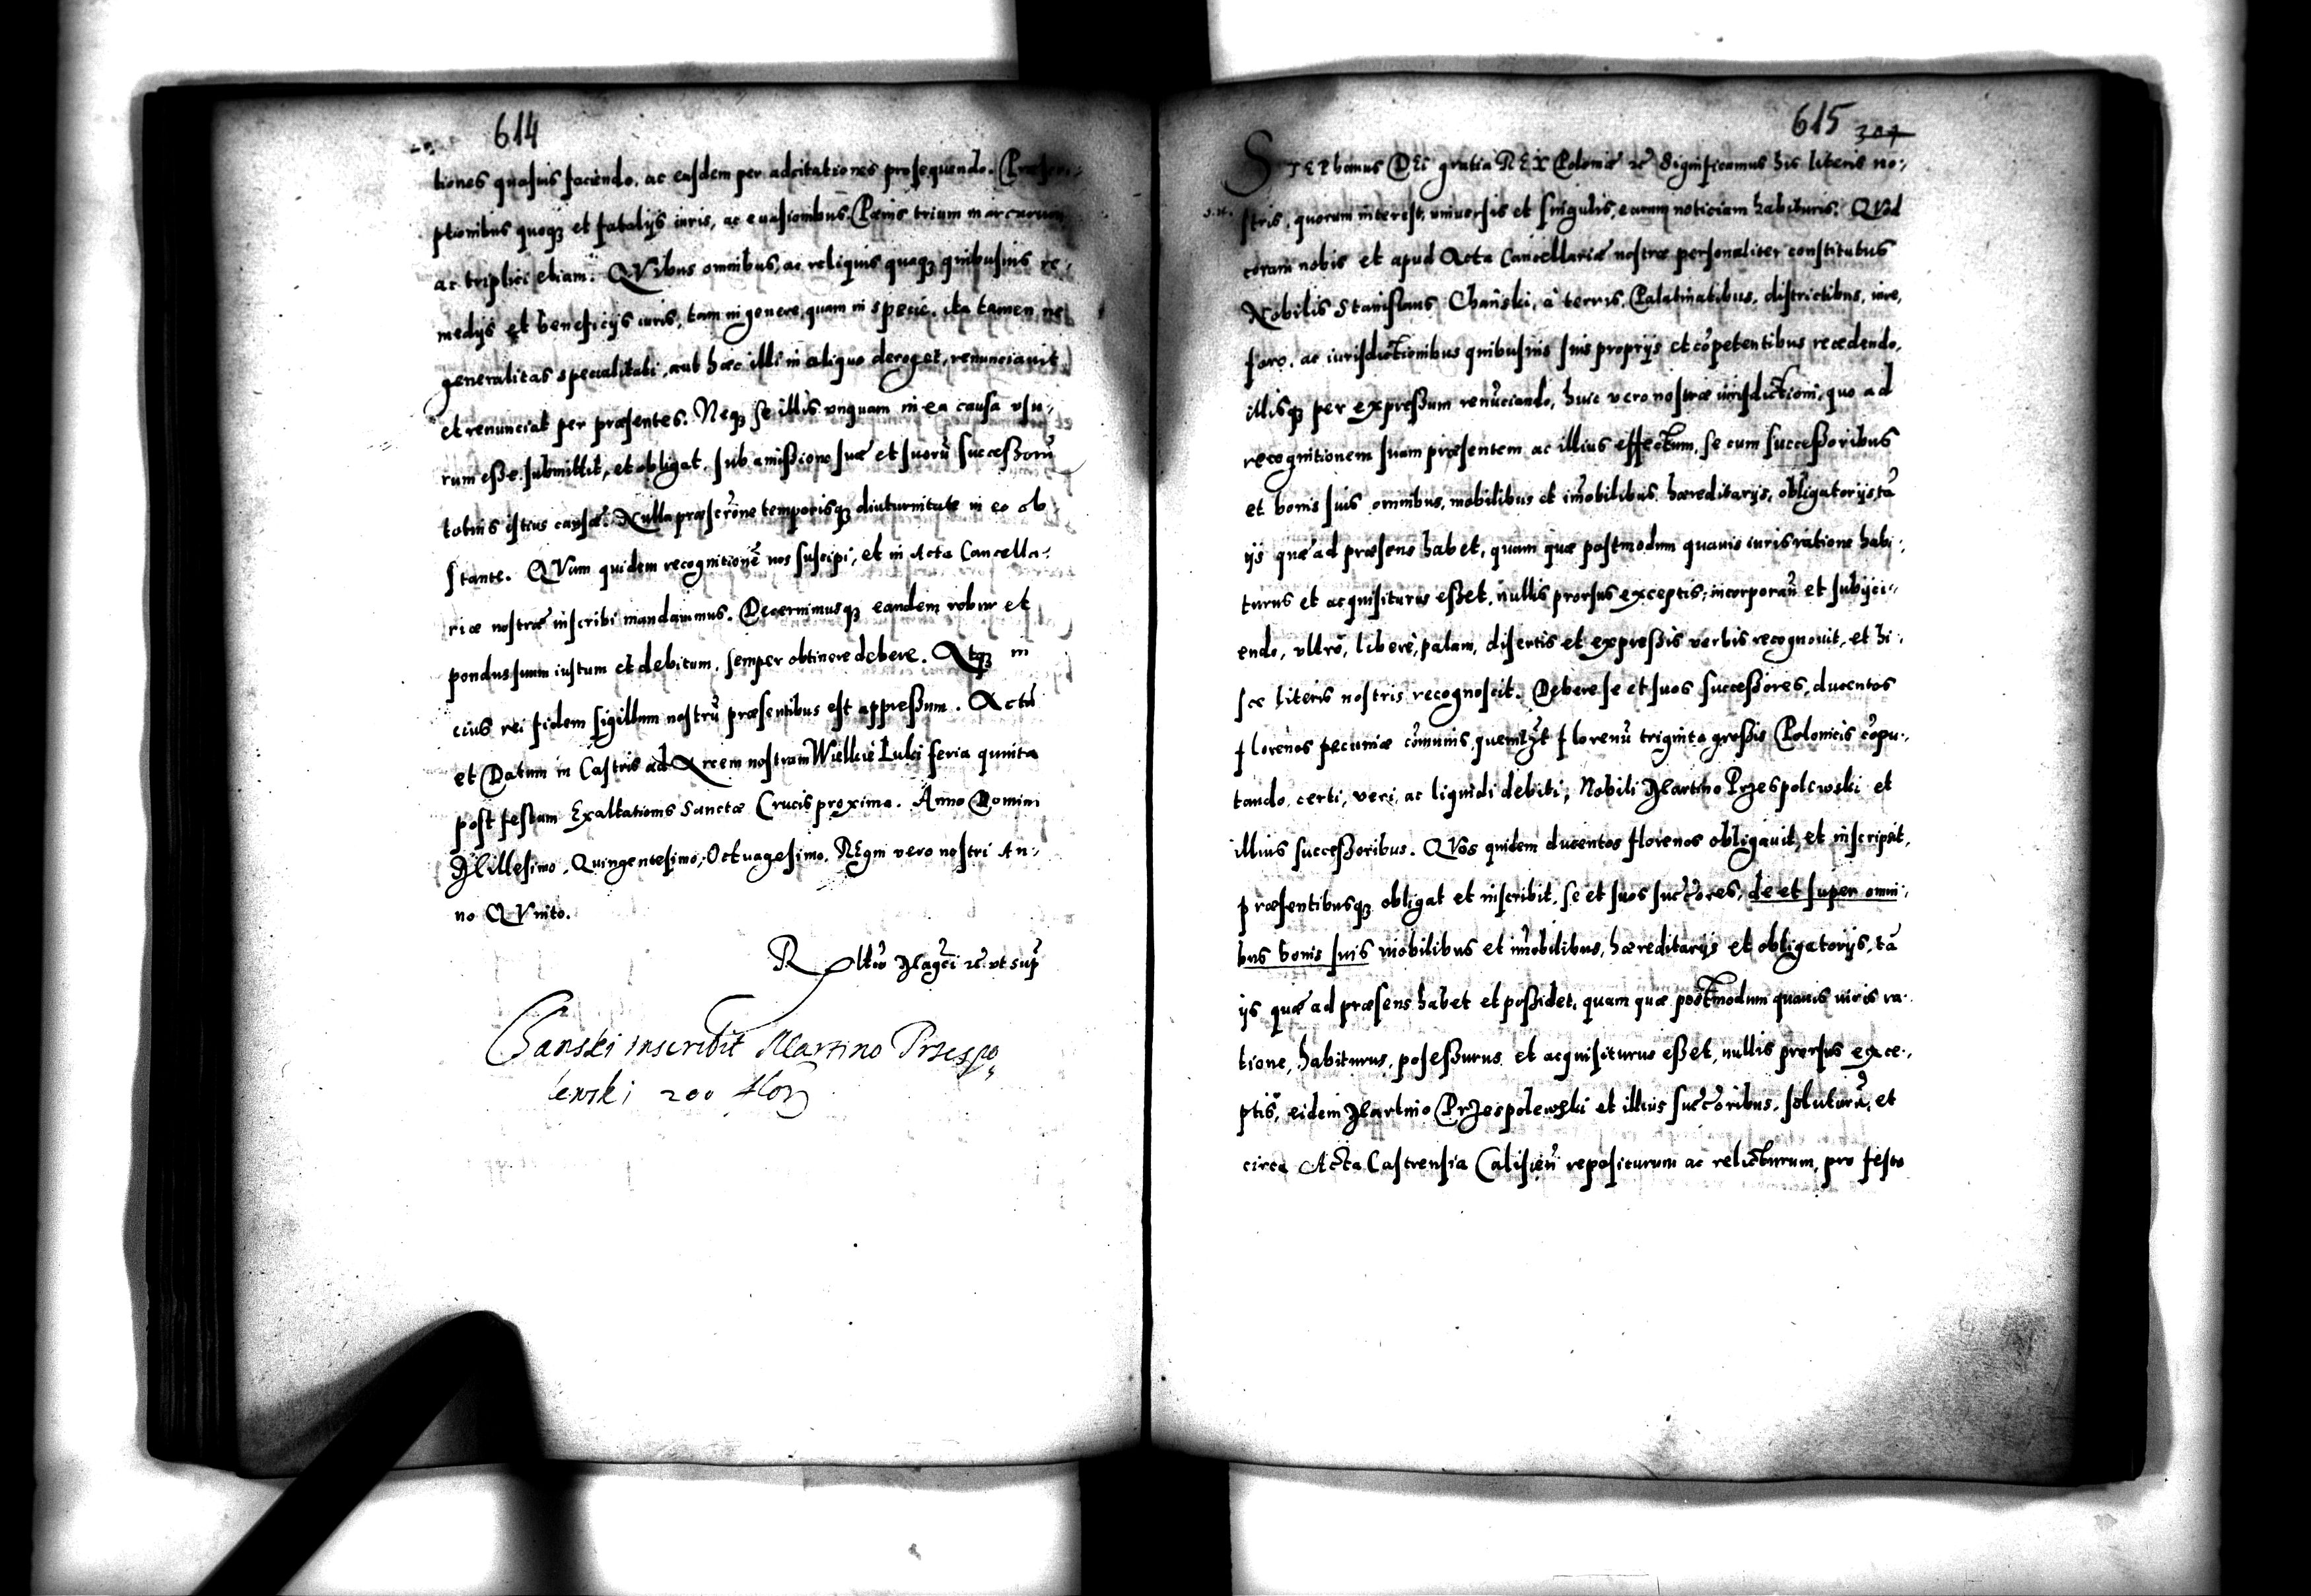 614
tiones quasuis faciendo, ac easdem per adcitationes prosequendo. Præscri-
ptionibus quoq3 et fatalijs iuris, ac euasionibus. Pænis trium marcarum
ac triplici etiam. QVibus omnibus, ac reliquis quaq3 quibusuis re-
medijs et beneficijs iuris, tam in genere, quam in specie, ita tamen, ne
generalitas specialitati, aut hæc illi in aliquo deroget, renunciauit
et renunciat per præsentes. Neq3 se illis vnquam in ea causa vsu-
rum eße submittit, et obligat, sub amißione suæ et suorū succeßorū
totius istius causæ. Nulla præscrōne temporisq3 diuturnitate in eo ob-
stante. QVam quidem recognitionē nos suscipi, et in Acta Cancella-
riæ nostræ inscribi mandauimus. Decernimusq3 eandem robur et
pondus suum iustum et debitum, semper obtinere debere. Atq3 in
eius rei fidem sigillum nostrū præsentibus est appreßum. Actū
et Datum in Castris ad Arcem nostram Wielkie Luki feria quinta
post festum Exaltationis Sanctæ Crucis proxima. Anno Domini
Millesimo, Quingentesimo, Octuagesimo. REgni vero nostri An-
no QVinto.
vt sup
Chanski inscribit Martino Przespo
lewski 200 flor
615 307
STEPhanus DEi gratia REX Poloniæ &c Significamus his literis no-
stris, quorum interest, vniuersis et singulis, earum noticiam habituris. QVod
coram nobis et apud Acta Cancellariæ nostræ personaliter constitutus
Nobilis Stanislaus Chański, à terris, Palatinatibus, districtibus, iure,
foro, ac iurisdictionibus quibusuis suis proprijs et cōpetentibus recedendo,
illisq3 per expreßum renūciando, huic vero nostræ iurisdictioni, quo ad
recognitionem suam præsentem ac illius effectum, se cum succeßoribus
et bonis suis omnibus, mobilibus et īmobilibus, hæreditarijs, obligatorijs tā
ijs quæ ad præsens habet, quam quæ postmodum quauis iuris ratione habi-
turus et acquisiturus eßet, nullis prorsus exceptis, incorporañ et subijci-
endo, vltrò, liberè, palam, disertis et expreßis verbis recognouit, et hi-
sce literis nostris recognoscit. Debere se et suos succeßores, ducentos
florenos pecuniæ cōmunis, quemlz̃t florenū triginta großis Polonicis cōpu-
tando, certi, veri, ac liquidi debiti, Nobili Martino Przespolewski et
illius succeßoribus. QVos quidem ducentos florenos obligauit, et inscripsit,
præsentibusq3 obligat et inscribit, se et suos succ̄ores, de et super omni-
bus bonis suis mobilibus et īmobilibus, hæreditarijs et obligatorijs, tā
ijs quæ ad præsens habet et poßidet, quam quæ postmodum quauis iuris ra-
tione, habiturus, poseßurus et acquisiturus eßet, nullis prorsus exce-
ptis, eidem Martino Przespolewski et illius succ̄oribus, solutурū, et
circa Acta Castrensia Calisieñ repositurum ac relicturum, pro festo